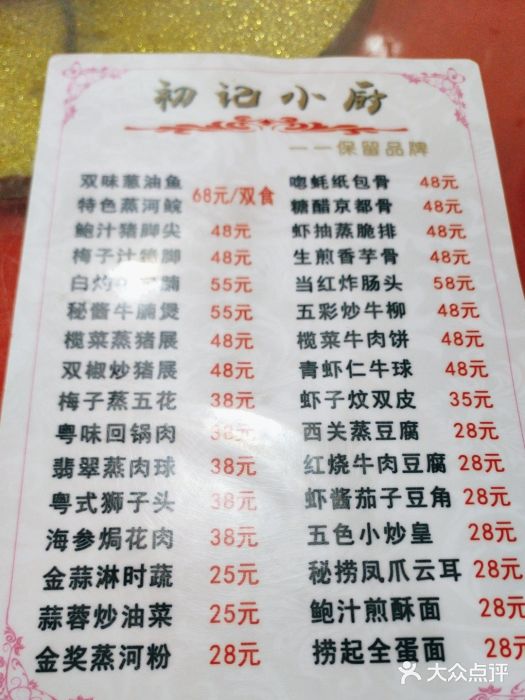 初记小厨
——保留品牌
双味葱油鱼
特色蒸河鲩
68元/双食
鲍汁猪脚尖 48元
梅子汁猪脚 48元
白灼 腩 55元
秘酱牛腩煲 55元
榄菜蒸猪展 48元
双椒炒猪展 48元
梅子蒸五花 38元
粤味回锅肉 38元
翡翠蒸肉球 38元
粤式狮子头 38元
海参焗花肉 38元
金蒜淋时蔬 25元
蒜蓉炒油菜 25元
金奖蒸河粉 28元
唿蚝纸包骨 48元
糖醋京都骨 48元
虾抽蒸脆排 48元
生煎香芋骨 48元
当红炸肠头 58元
五彩炒牛柳 48元
榄菜牛肉饼 48元
青虾仁牛球 48元
虾子炆双皮 35元
西关蒸豆腐 28元
红烧牛肉豆腐 28元
虾酱茄子豆角 28元
五色小炒皇 28元
秘捞凤爪云耳 28元
鲍汁煎酥面 28元
捞起全蛋面 28元
大众点评